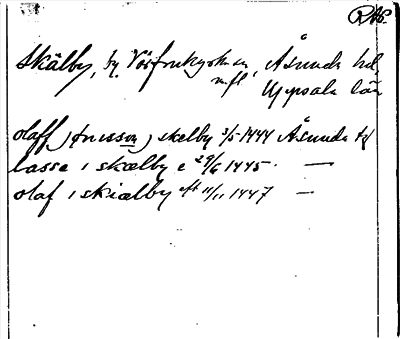 RAP.
Skälby, by, Vårfrukyrka sn, Åsunda hd,
m fl
Uppsala län
olaff Jonsson, skelby 3/5 1444 Åsunda hd
lasse i skælby e 29/6 1445. —
olaf i skiælby eft 11/11 1447 —